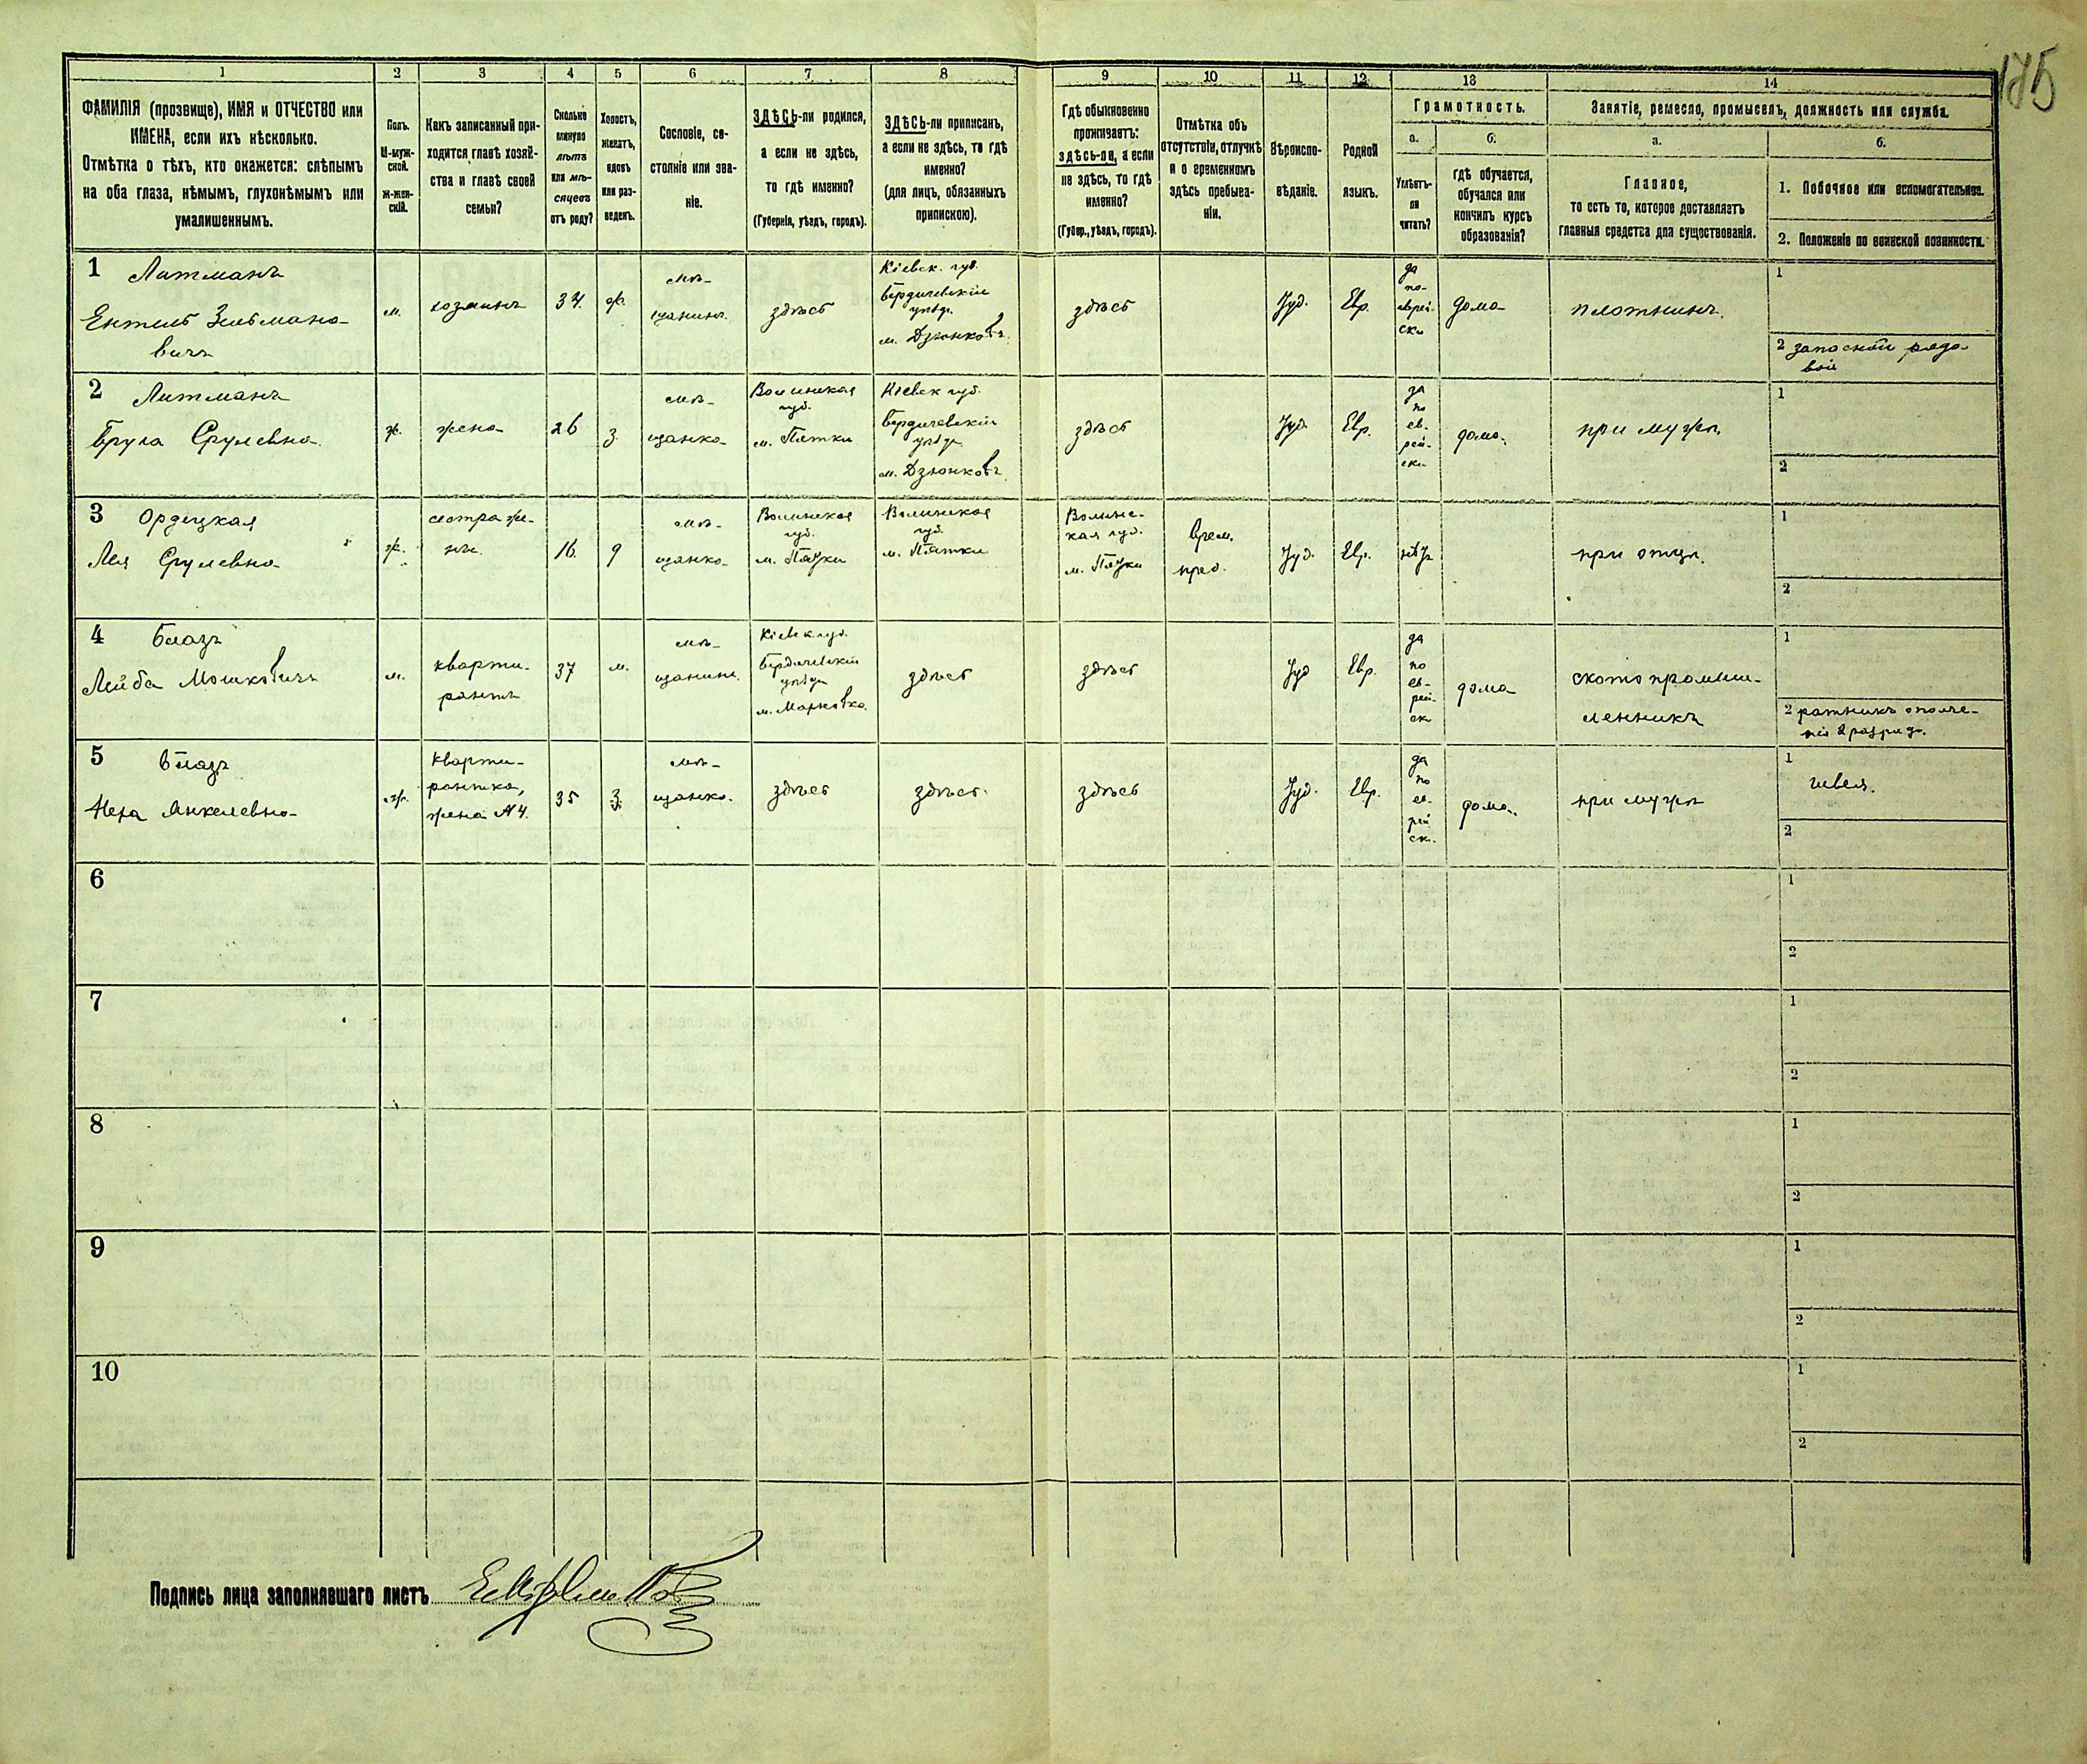 175
1 2 3 4 5 6 7 8 9 10 11 12 13 14
ФАМИЛІЯ (прозвище), ИМЯ и ОТЧЕСТВО или
ИМЕНА, если ихъ нѣсколько.
Отмѣтка о тѣхъ, кто окажется: слѣпымъ
на оба глаза, нѣмымъ, глухонѣмымъ или
умалишеннымъ.
Полъ.
М-муж-
ской.
ж-жен-
скій.
Какъ записанный при-
ходится главѣ хозяй-
ства и главѣ своей
семьи?
Сколько
минуло
лѣтъ
или мѣ-
сяцевъ
отъ роду?
Холостъ,
женатъ,
вдовъ
или раз-
веденъ.
Сословіе, со-
стояніе или зва-
ніе.
ЗДѢСЬ-ли родился,
а если не здѣсь,
то гдѣ именно?
(Губернія, уѣздъ, городъ).
ЗДѢСЬ-ли приписанъ,
а если не здѣсь, то гдѣ
именно?
(для лицъ, обязанныхъ
припискою).
Гдѣ обыкновенно
проживаетъ:
здѣсь-ли, а если
не здѣсь, то гдѣ
именно?
(Губер., уѣздъ, городъ).
Отмѣтка объ
отсутствіи, отлучкѣ
и о временномъ
здѣсь пребыва-
ніи.
Вѣроиспо-
вѣданіе.
Родной
языкъ.
Грамотность.
а.
Умѣетъ-
ли
читать?
б.
гдѣ обучается,
обучался или
кончилъ курсъ
образованія?
Занятіе, ремесло, промыселъ, должность или служба.
а.
Главное,
то есть то, которое доставляетъ
главныя средства для существованія.
б.
1. Побочное или вспомогательное.
2. Положеніе по воинской повинности.
1 Литманъ
Ентель Зельмано-
вичъ
м.
хозяинъ
34
ж.
мѣ-
щанинъ.
здѣсь
Кіевск. губ.
Бердичевскій
уѣзд.
м. Дзюнковъ.
здѣсь
Іуд.
Евр.
да
по-
еврей-
ски
дома
плотникъ.
1
2 запасной рядо-
вой
2 Литманъ
Бруха Срулевна
ж.
жена
26
з.
мѣ-
щанка
Волинская
губ.
м. Пятки
Кіевск губ.
Бердичевскій
уѣзд.
м. Дзюнковъ.
здѣсь
Іуд.
Евр.
да
по
ев-
рей-
ски
дома.
при мужѣ.
1
2
3 Ордецкая
Лея Срулевна
ж.
сестра же-
ны.
16
д
мѣ-
щанка
Волинская
губ.
м. Пятки
Волинская
губ.
м. Пятки
Волинс-
кая губ.
м. Пятки
врем.
преб.
Іуд.
Евр.
нѣт
при отцѣ.
1
2
4 Блазъ
Лейба Мошковичъ
м.
кварти-
рантъ
37
м.
мѣ-
щанинъ.
Кіевск губ.
Бердичевскій
уѣзд
м. Марковка.
здѣсь
здѣсь
Іуд
Евр.
да
по
ев-
рей-
ск
дома
скотопромыш-
ленникъ
1
2 ратникъ ополче-
нія 2 разряда.
5 Блазъ
Неха Янкелевна
ж.
кварти-
рантка,
жена №4.
35
з.
мѣ-
щанка.
здѣсь
здѣсь.
здѣсь
Іуд.
Евр.
да
по
ев-
рей
ск.
дома.
при мужѣ
1 швея.
2
6
1
2
7
1
2
8
1
2
9
1
2
10
1
2
Подпись лица заполнявшаго листъ